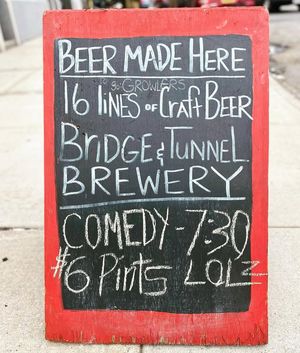 BEER MADE HERE
to go GROWLERS
16 lINES OF CraFt BEER
BriDGE & TUNNEL
BREWERY
COMEDY - 7:30
$6 Pints LOLZ